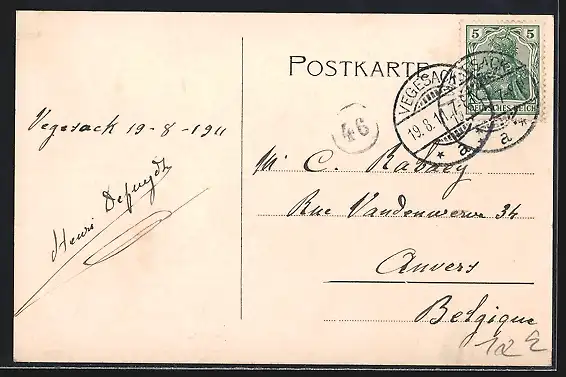 POSTKARTE
5
DEUTSCHES REICH
VEGESACK
19.8.11.
* a *
VEGESACK
* a *
46
Vegesack 19-8-1911
Henri Depuydt
Mr C. Rabaey
Rue Vandenwerve 34
Anvers
Belgique